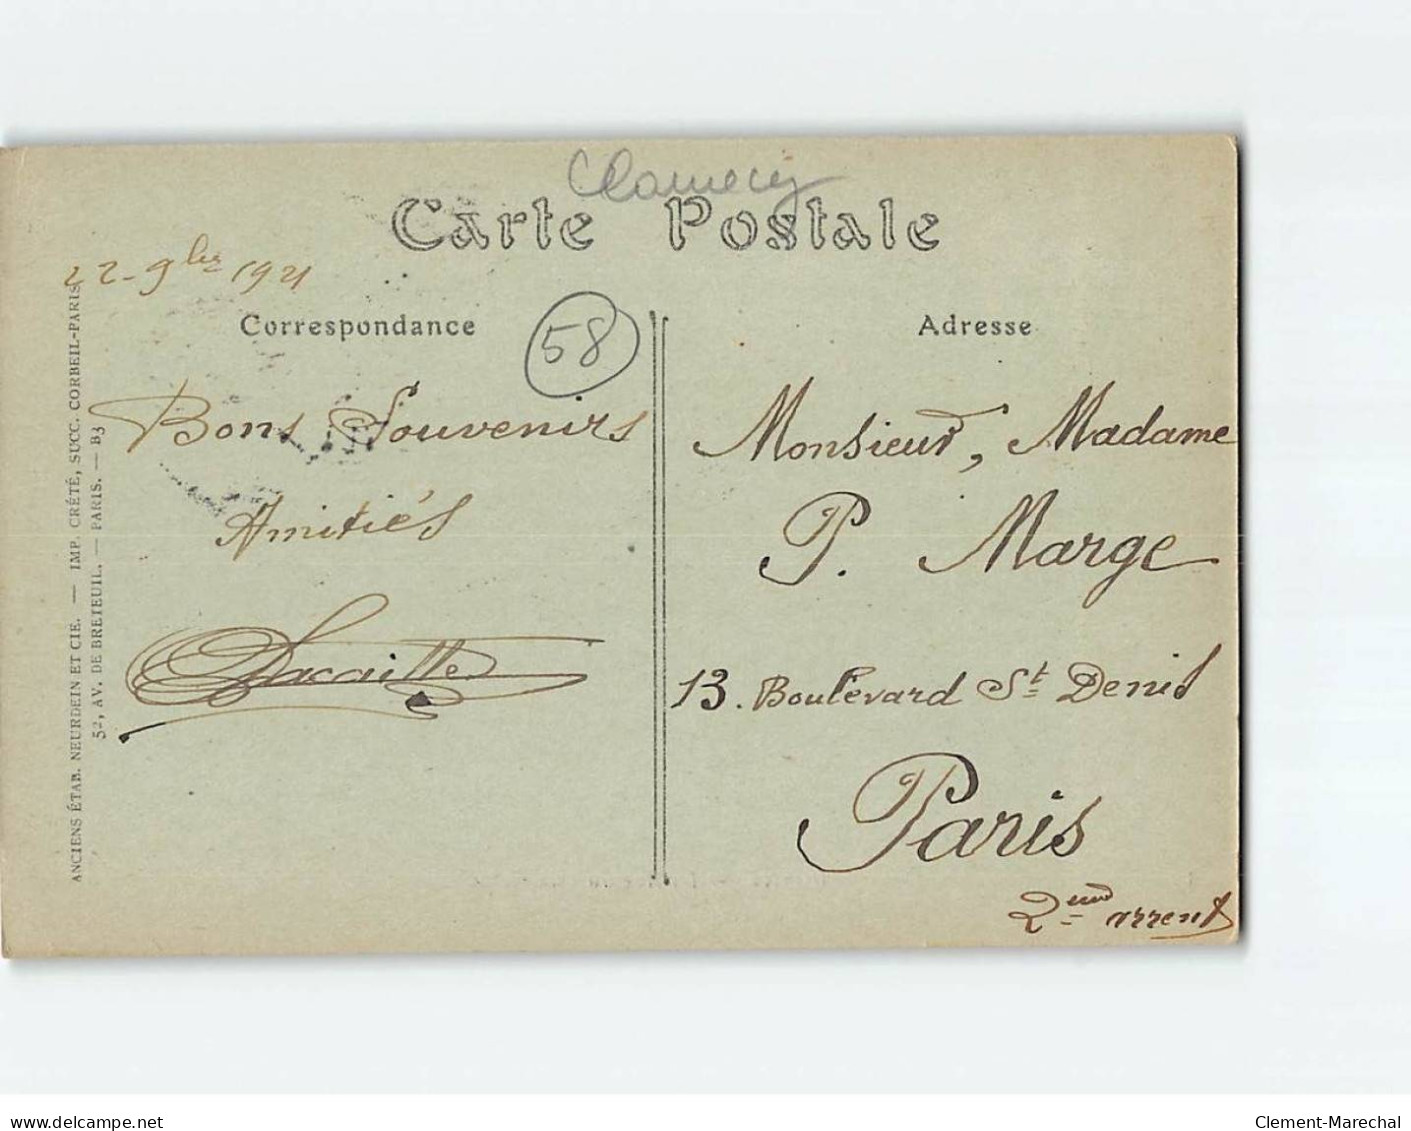 Clamecy
Carte Postale
22-9bre 1921
Correspondance
58
Adresse
Bons Souvenirs
Amitiés
Lacaille
Monsieur, Madame
P. Marge
13. Boulevard St Denis
Paris
2eme arrent
ANCIENS ÉTAB. NEURDEIN ET CIE. — IMP. CRÉTÉ, SUCC. CORBEIL-PARIS
52, AV. DE BRETEUIL. — PARIS. — B3
www.delcampe.net
Clement-Marechal